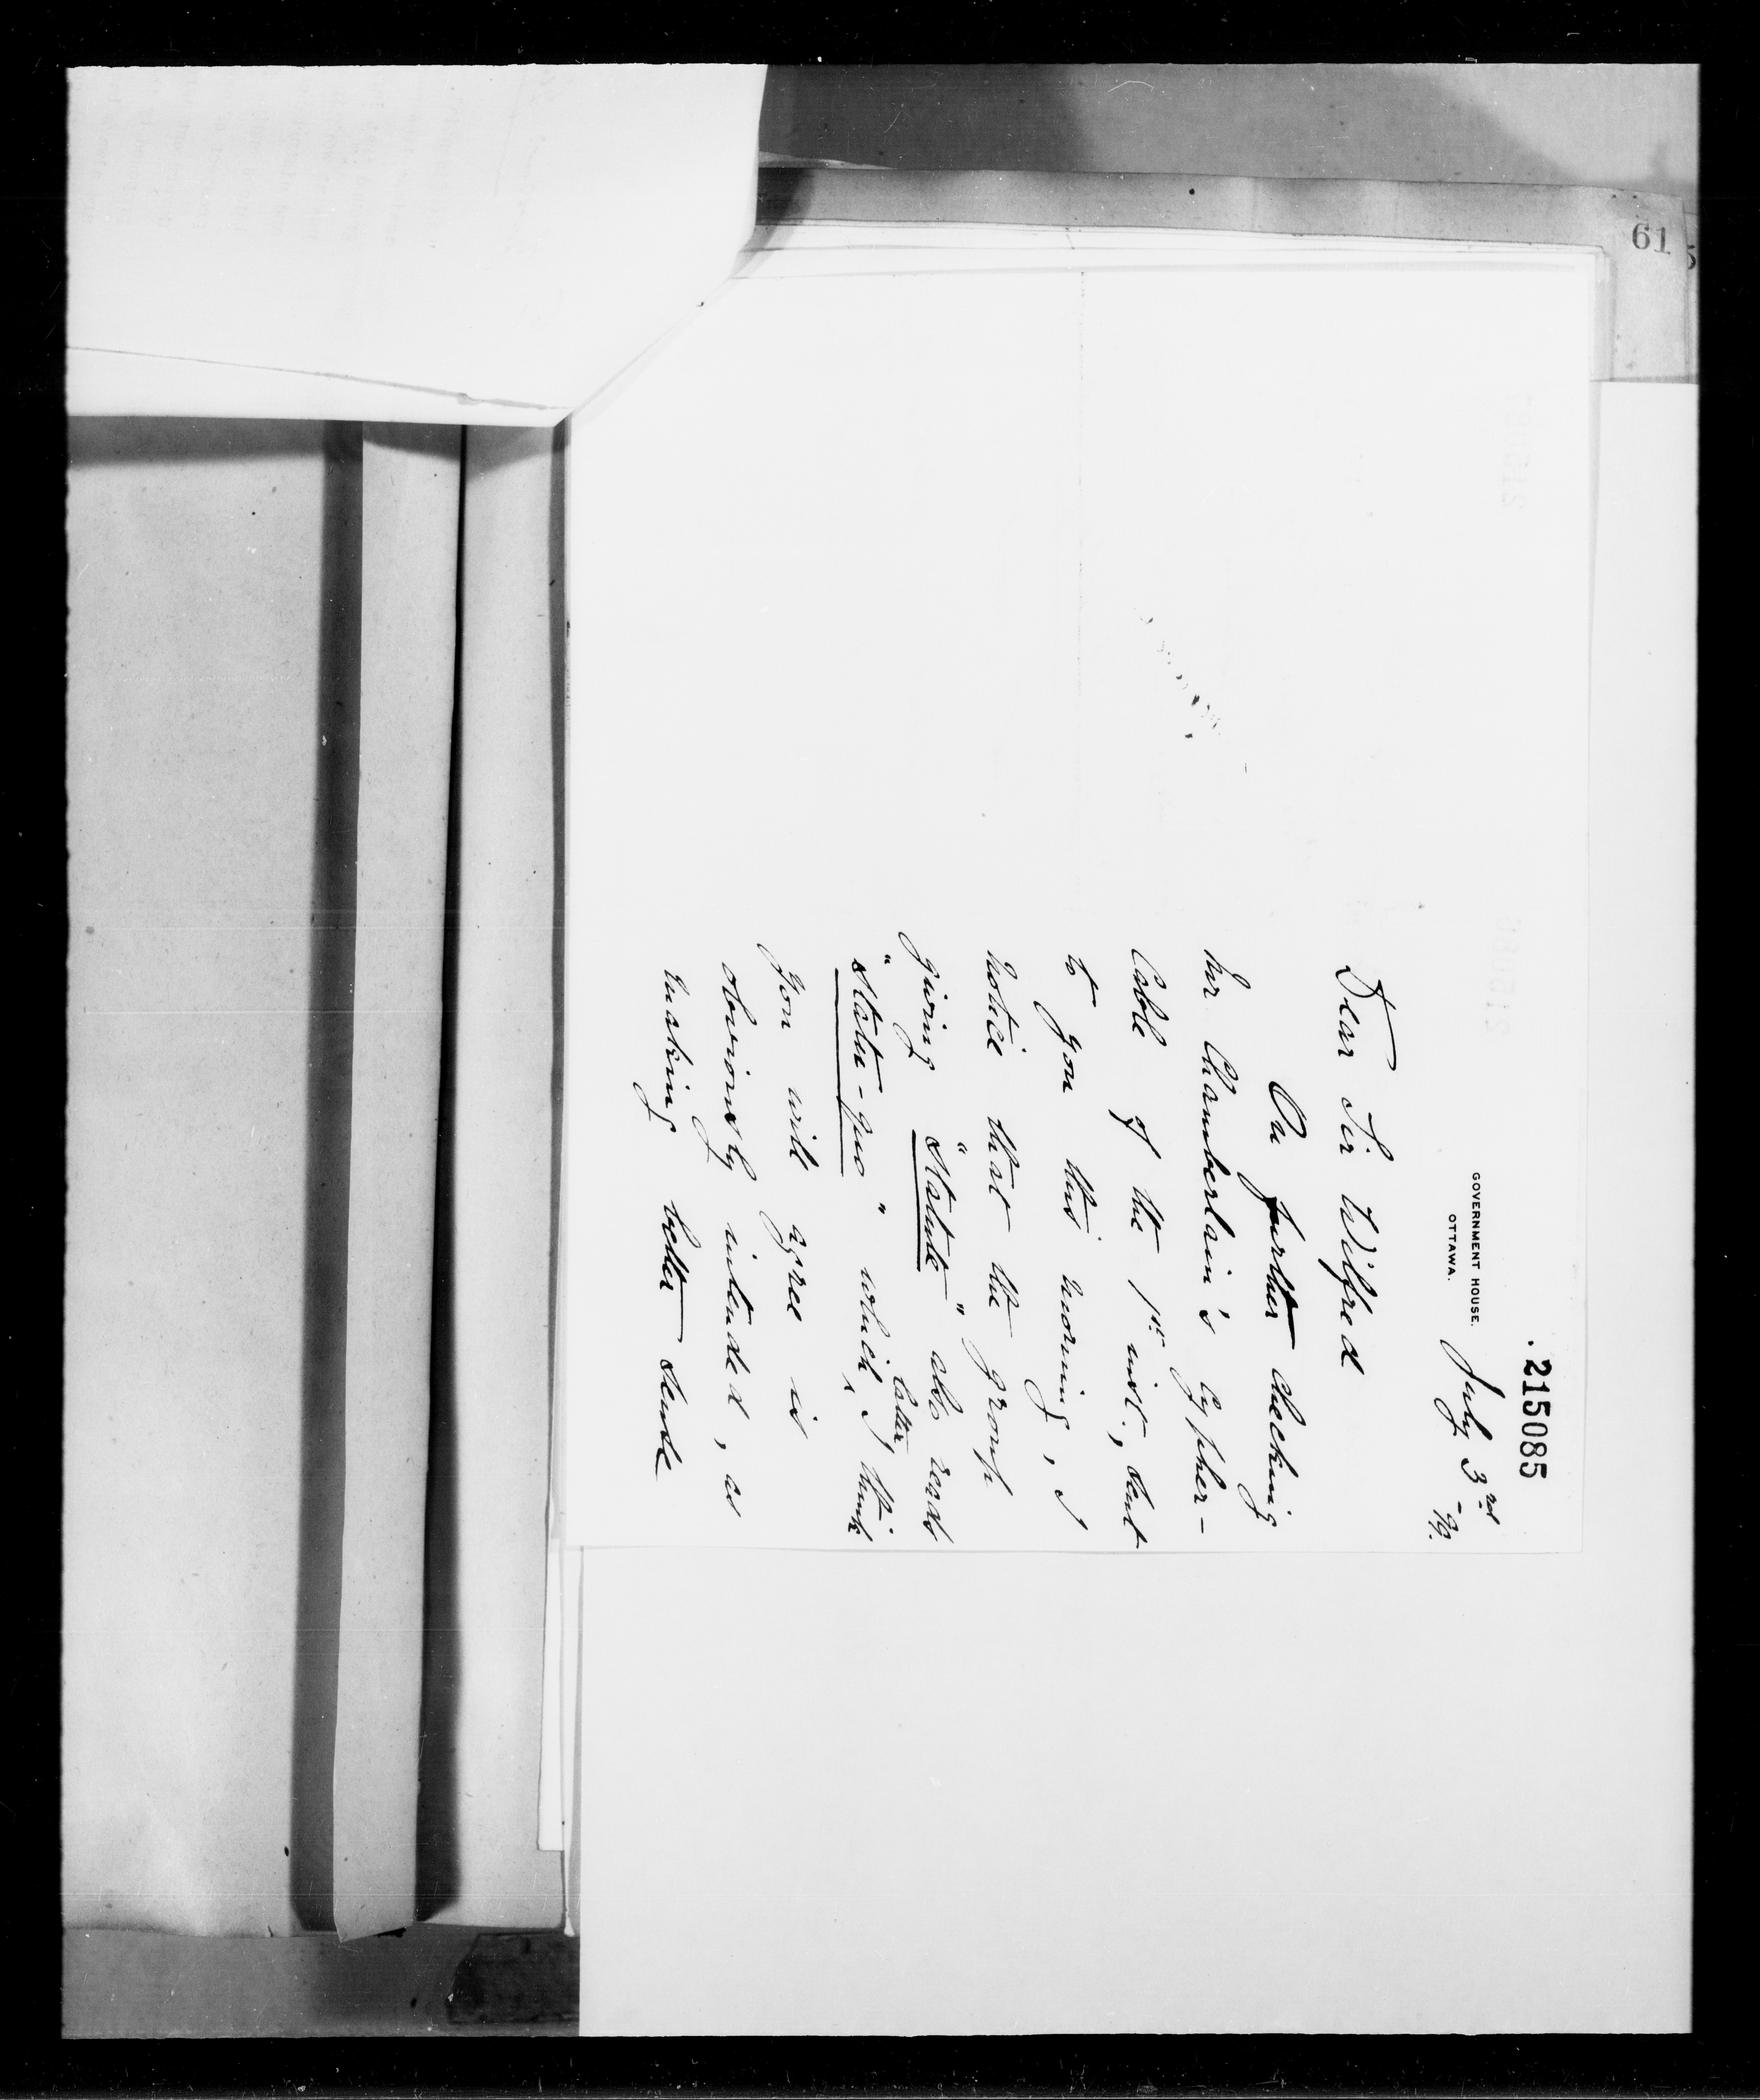 61
215085
GOVERNMENT HOUSE.
OTTAWA.
July 3rd - 99.
Dear Sir Wilfred
On further checking
Mr Chamberlain's cypher-
Cable of the 1st inst, sent
to you this morning, I
notice that the group
giving "Statute" also reads
"Statu-quo" which, latter, I think
you will agree is
obviously intended, as
making better sense